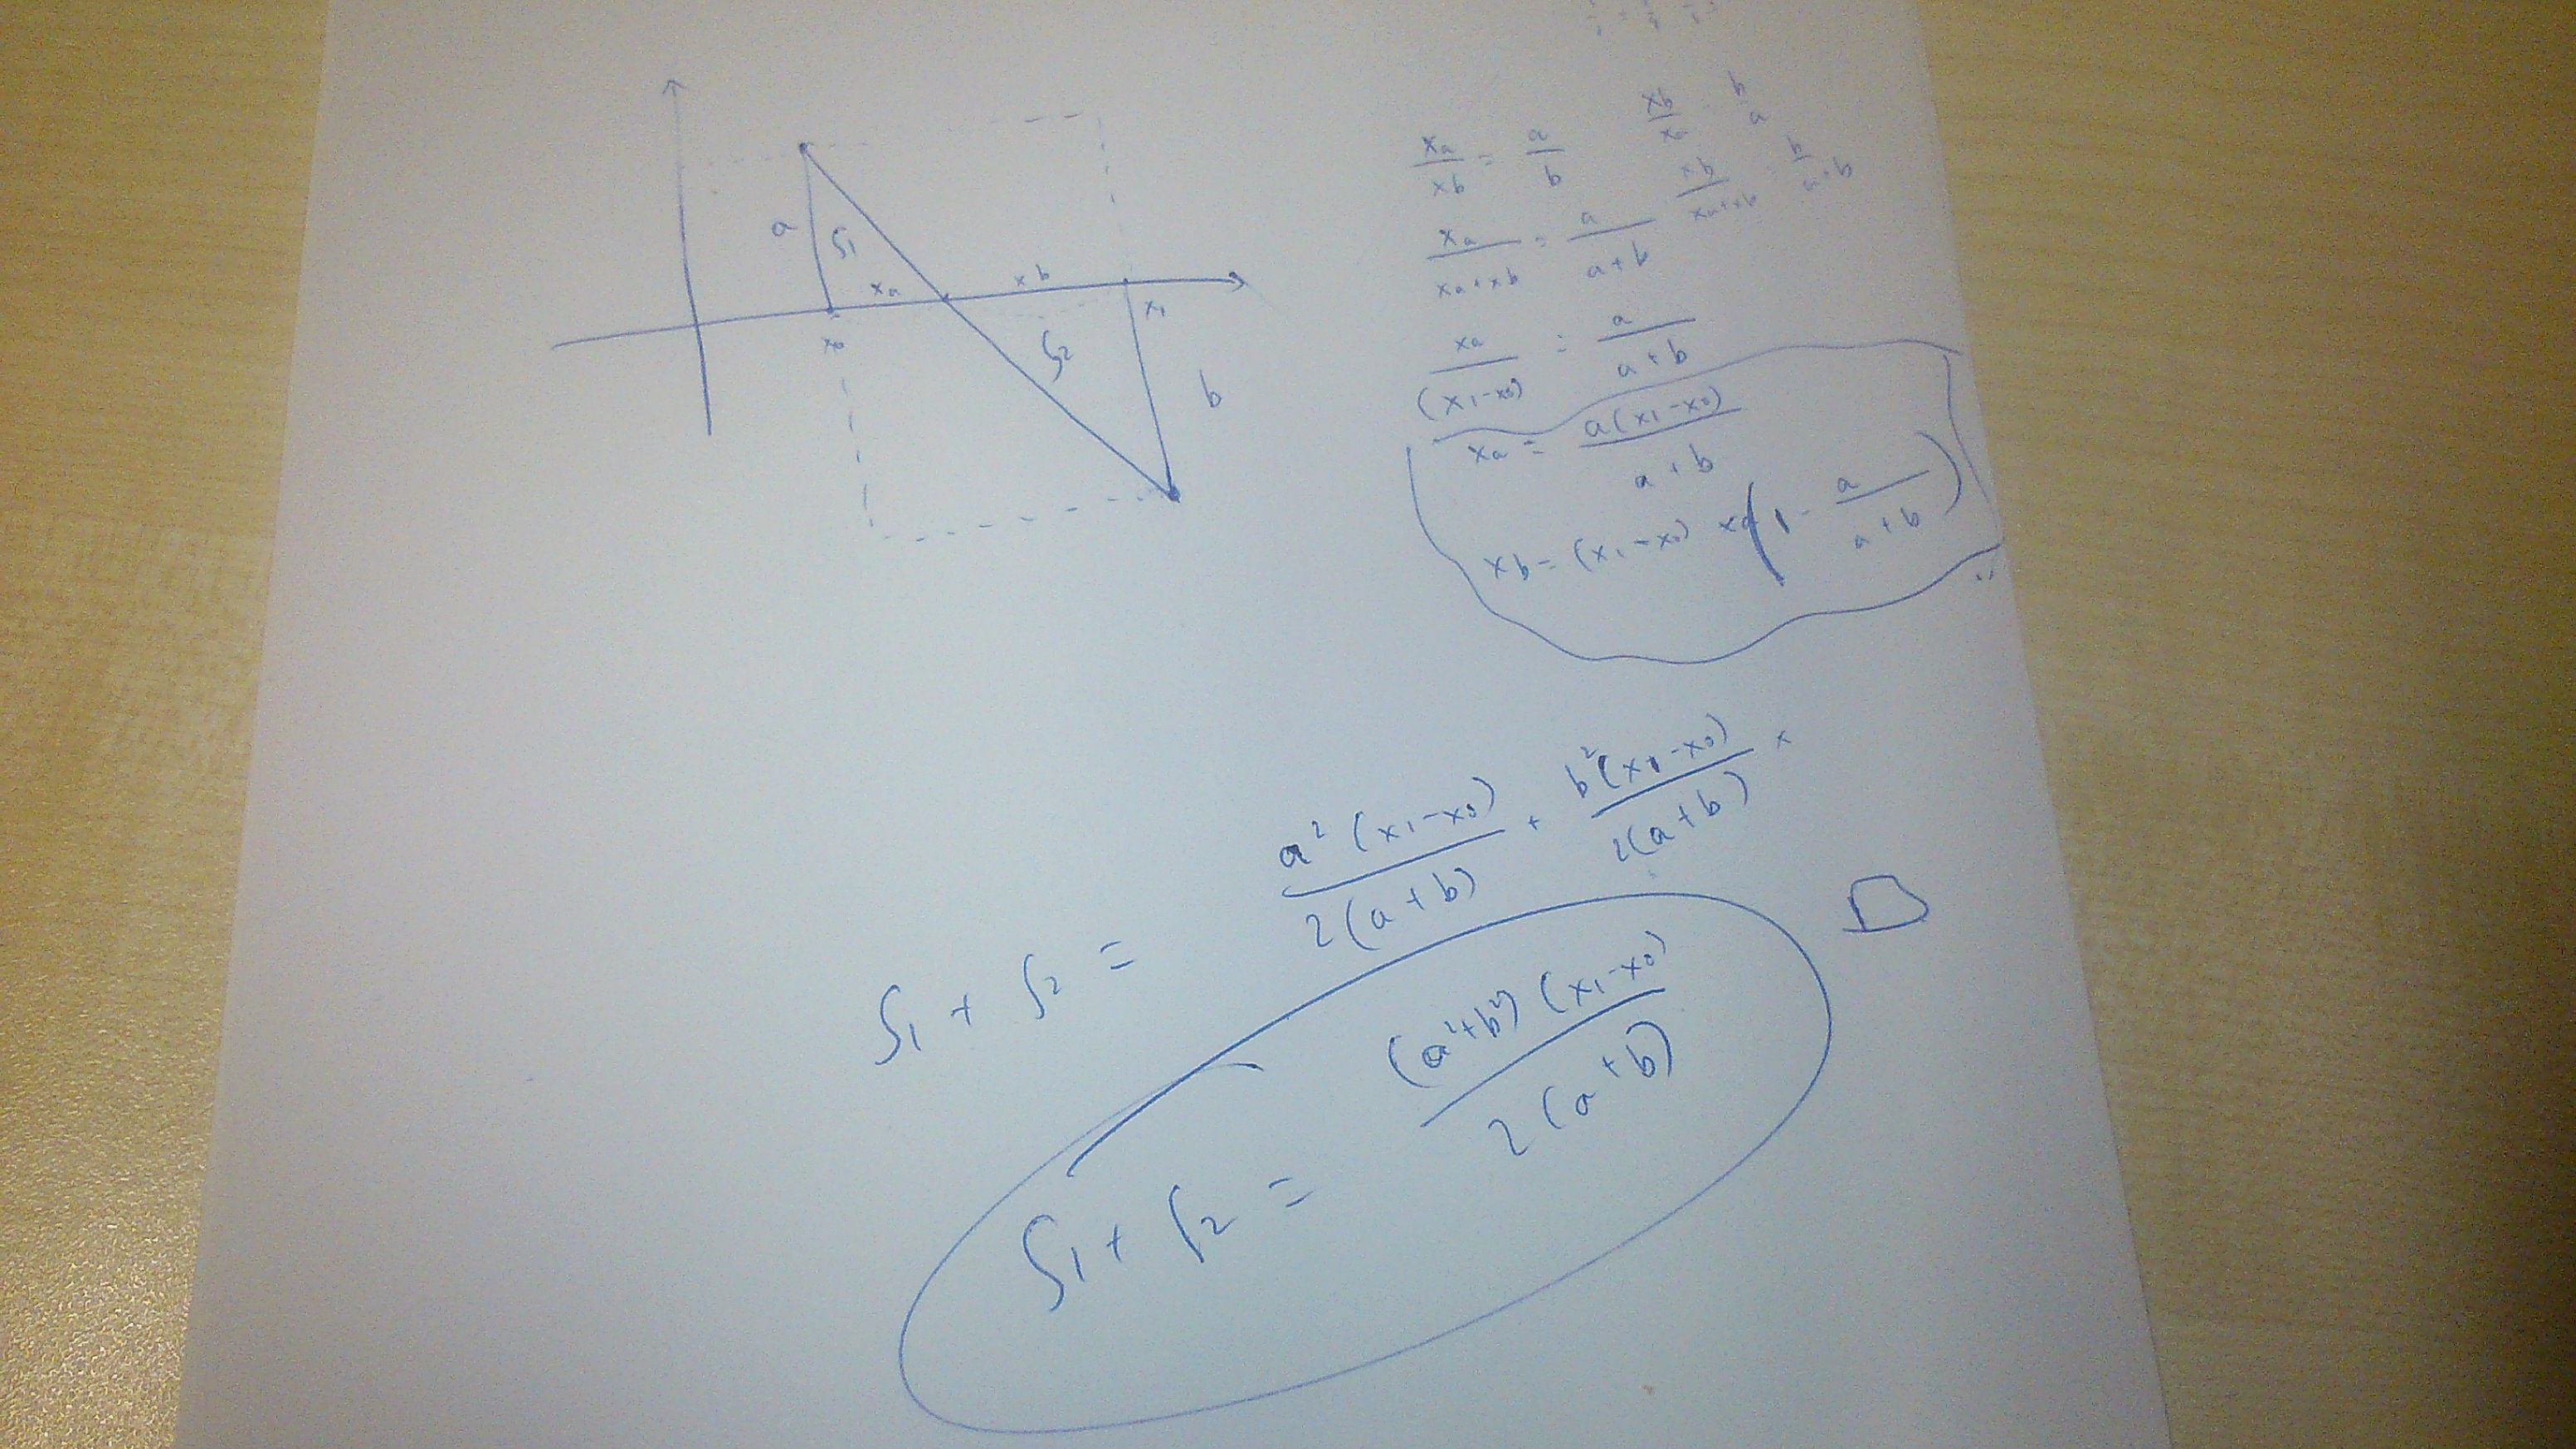 a
S1
xa
xb
x0
x1
S2
b
xa/xb = a/b
xb/xa = b/a
xa/(xa+xb) = a/(a+b)
xb/(xa+xb) = b/(a+b)
xa/(x1-x0) = a/(a+b)
xa = a(x1-x0)/(a+b)
xb = (x1-x0) x (1 - a/(a+b))
S1 + S2 = a²(x1-x0)/2(a+b) + b²(x1-x0)/2(a+b)
S1 + S2 = (a²+b²)(x1-x0)/2(a+b)